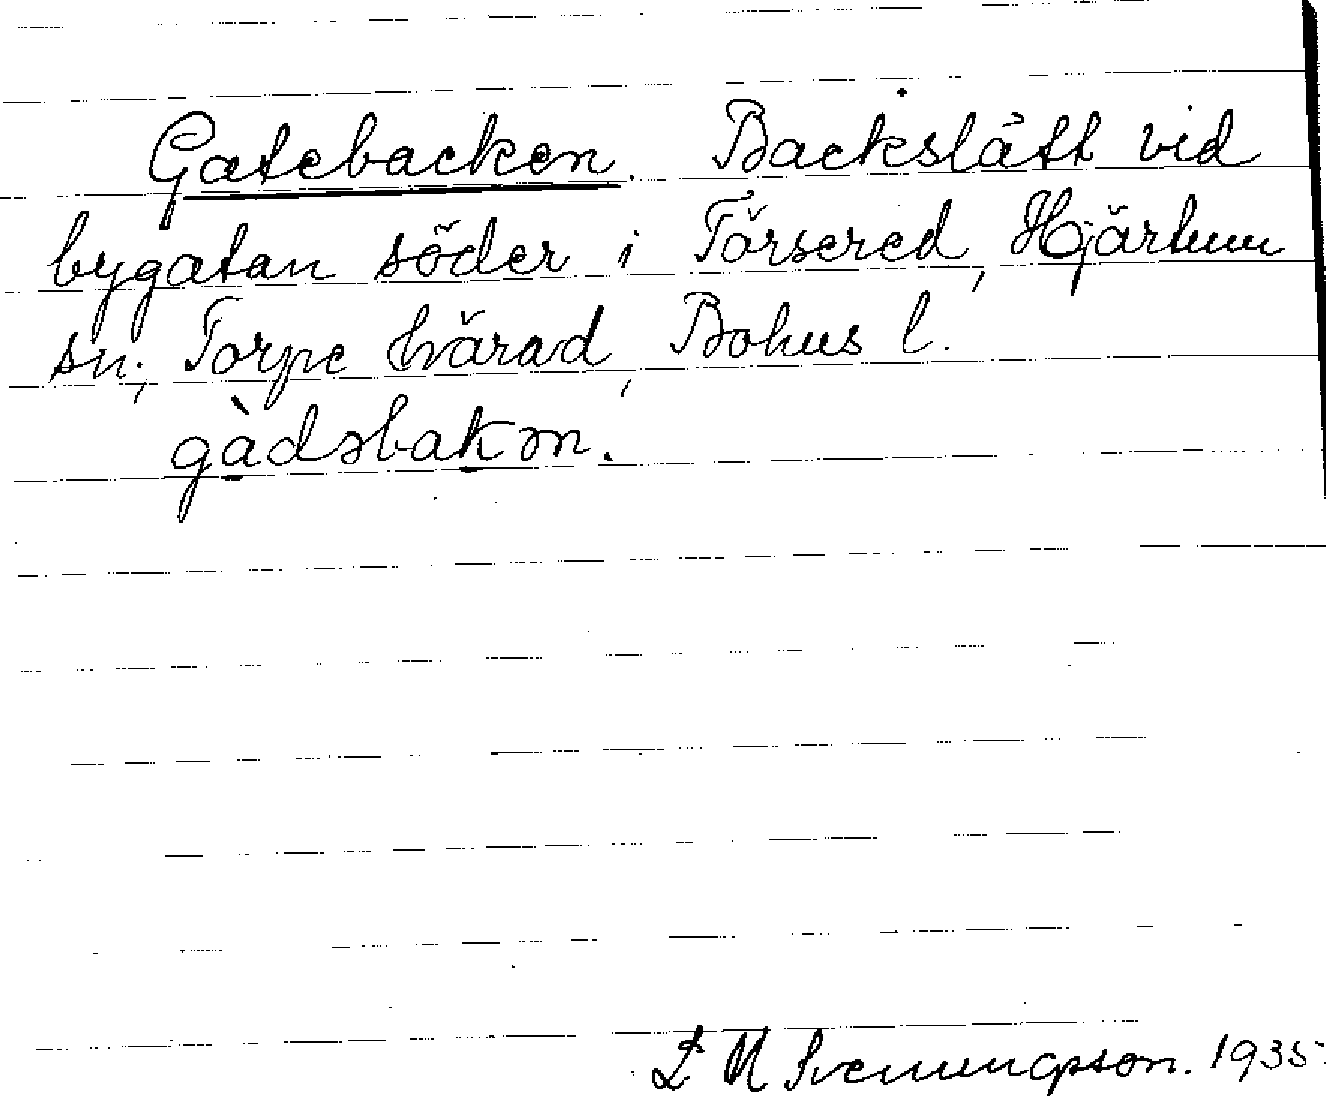 Gatebacken. Backslått vid
bygatan söder i Törsered, Hjärtum
sn; Torpe härad, Bohus l.
gàdəbakən.
L M Svenungsson. 1935